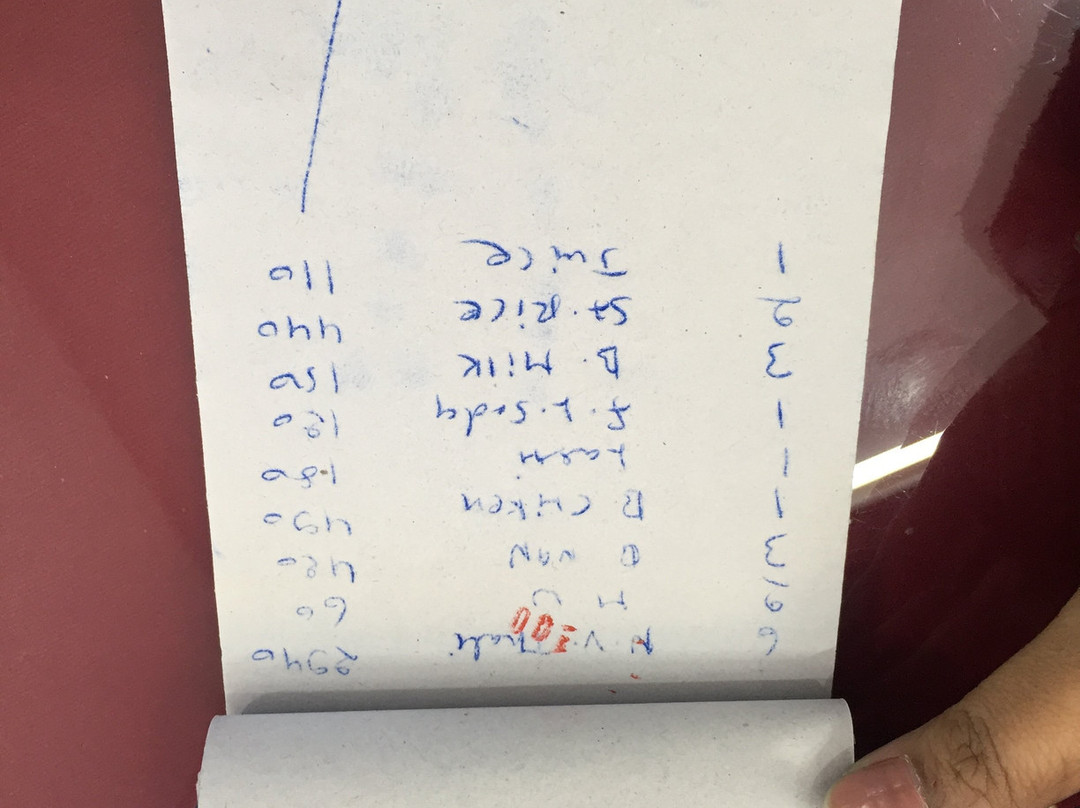 6 N.V. Thali 2940
2 M W 60
3 B NAN 420
1 B chiken 490
1 180
1 F.L.Soda 120
3 B. Milk 150
2 St. Rice 440
1 Juice 110